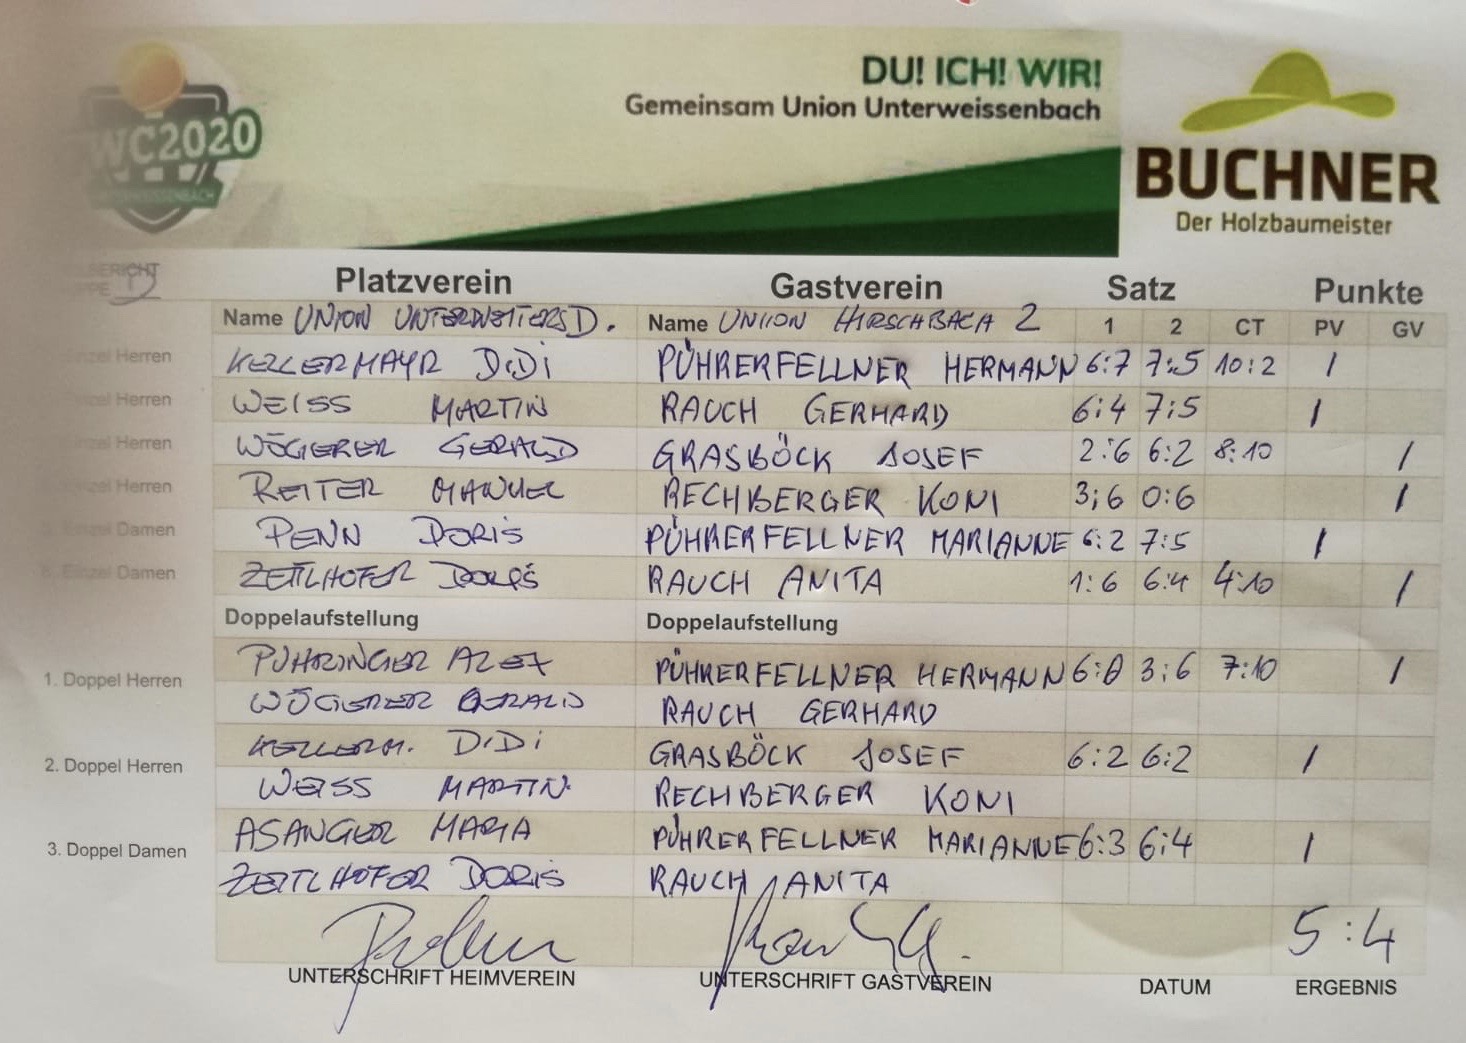 DU! ICH! WIR!
Gemeinsam Union Unterweissenbach
WC2020
BUCHNER
Der Holzbaumeister
Platzverein Gastverein Satz Punkte
Name UNION UNTERWEITERSD. Name UNIION HIRSCHBACH 2 1 2 CT PV GV
Einzel Herren KELLERMAYR DiDi PÜHRERFELLNER HERMANN 6:7 7:5 10:2 /
Einzel Herren WEISS MARTIN RAUCH GERHARD 6:4 7:5 /
Einzel Herren WÖGERER GERALD GRASBÖCK JOSEF 2:6 6:2 8:10 /
Einzel Herren REITER MANUEL RECHBERGER KONI 3:6 0:6 /
Einzel Damen PENN DORIS PÜHRERFELLNER MARIANNE 6:2 7:5 /
6. Einzel Damen ZEITLHOFER DORIS RAUCH ANITA 1:6 6:4 4:10 /
Doppelaufstellung Doppelaufstellung
1. Doppel Herren PÜHRINGER ALEX PÜHRERFELLNER HERMANN 6:0 3:6 7:10 /
WÖGERER GERALD RAUCH GERHARD
2. Doppel Herren KELLERM. DiDi GRASBÖCK JOSEF 6:2 6:2 /
WEISS MARTIN RECHBERGER KONI
3. Doppel Damen ASANGER MARIA PÜHRERFELLNER MARIANNE 6:3 6:4 /
ZEITLHOFER DORIS RAUCH ANITA
5:4
UNTERSCHRIFT HEIMVEREIN UNTERSCHRIFT GASTVEREIN DATUM ERGEBNIS